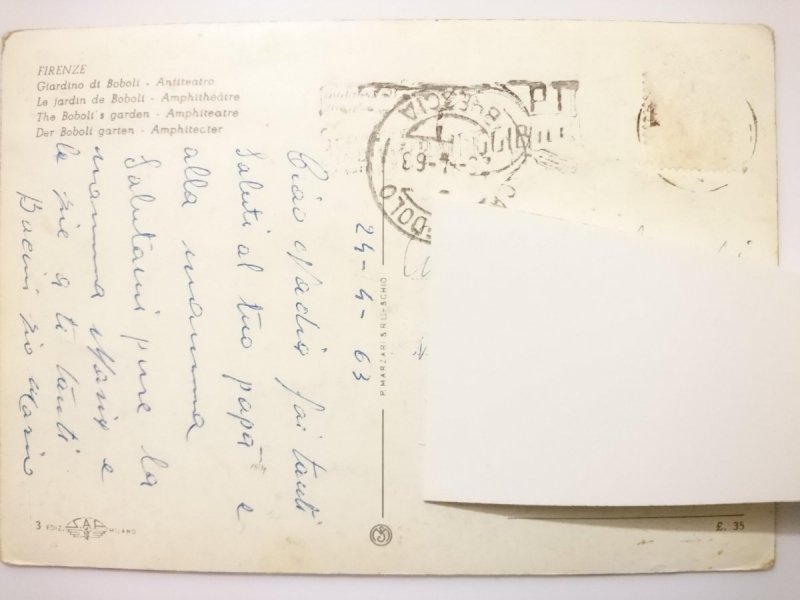 FIRENZE
Giardino di Boboli - Anfiteatro
Le jardin de Boboli - Amphithéâtre
The Boboli's garden - Amphiteatre
Der Boboli garten - Amphiteater
24-4-63
Ciao Nadia fai tanti
saluti al tuo papà e
alla mamma
Salutami pure la
nonna Maria e
le zie a ti tanti
Bacini zio Mario
P. MARZARI S.R.L. - SCHIO
BRESCIA
-4-63
DOLO
3 EDIZ. S.A.F. MILANO
£. 35